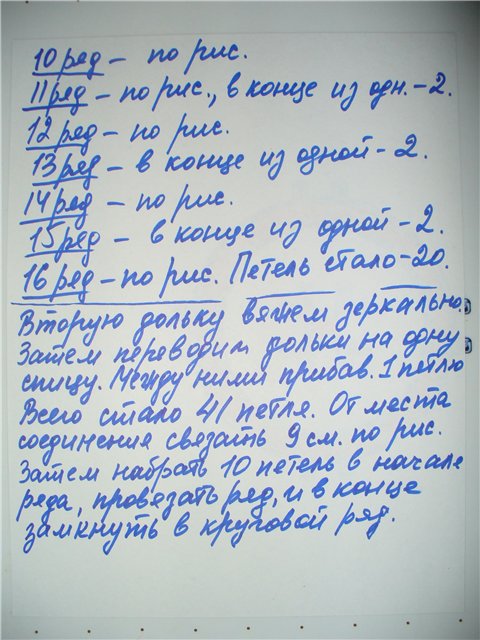 10 ряд - по рис.
11 ряд - по рис., в конце из одн. - 2.
12 ряд - по рис.
13 ряд - в конце из одной - 2.
14 ряд - по рис.
15 ряд - в конце из одной - 2.
16 ряд - по рис. Петель стало - 20.
Вторую дольку вяжем зеркально.
Затем переводим дольки на одну
спицу. Между ними прибав. 1 петлю
Всего стало 41 петля. От места
соединения связать 9 см. по рис.
Затем набрать 10 петель в начале
ряда, провязать ряд, и в конце
замкнуть в круговой ряд.